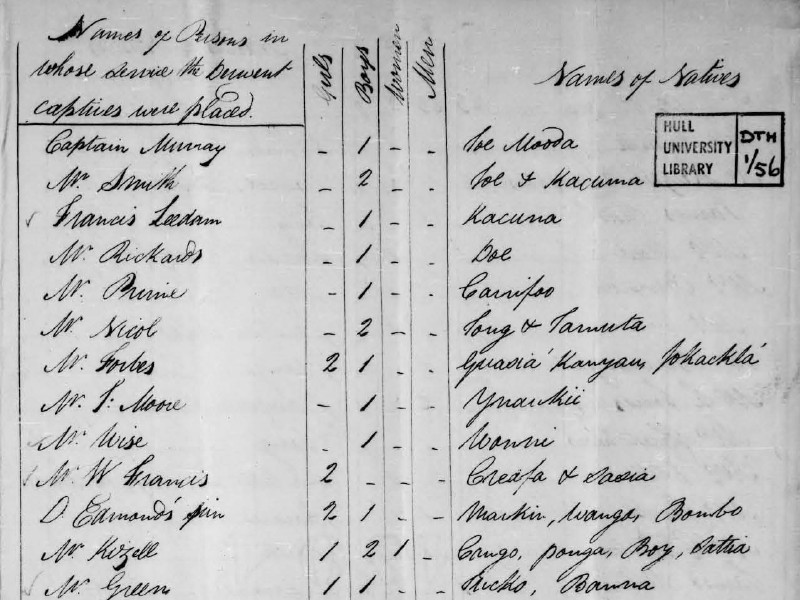 Names of Persons in
whose service the Derwent
captives were placed.
Girls Boys Women Men
Names of Natives
HULL
UNIVERSITY
LIBRARY
DTH
1/56
Captain Murray - 1 - - Soe Mooda
Mr Smith - 2 - - Soe & Kacuma
Francis Leedam - 1 - - Kacuna
Mr Rickards - 1 - - Doe
Mr Prinie - 1 - - Canifoo
Mr Nicol - 2 - - Song & Tamuta
Mr Forbes 2 1 - - Guasia Kanyau
Mr T. Moore - 1 - -
Mr Wise 1 - - Wonni
Mr W Francis 2 - - Creafa & Sasia
D. Edmond's 2 1 - - Markin, Wango, Bombo
Mr Kizell 1 2 1 - Congo, ponga, Boy,
Mr Green 1 1 - - Banna